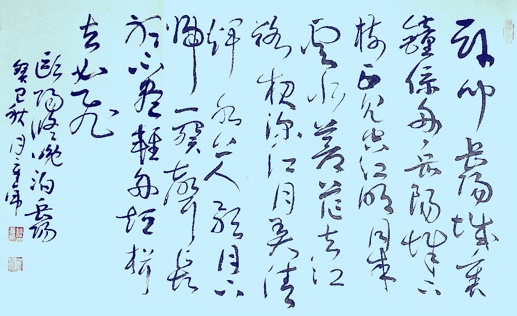 卧闻岳陽城裏
鐘係舟岳陽城下
樹正見空江明月来
雲水蒼茫失江
路夜深江月弄清
輝水上人歌月下
歸一闋聲長
聽不盡輕舟短楫
去如飛
歐陽修晚泊岳陽
癸巳秋月